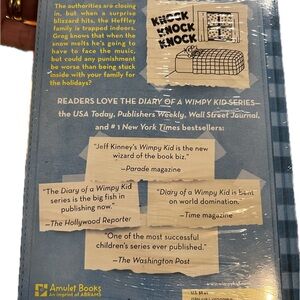 The authorities are closing
in, but when a surprise
blizzard hits, the Heffley
family is trapped indoors.
Greg knows that when the
snow melts he's going to
have to face the music,
but could any punishment
be worse than being stuck
inside with your family for
the holidays?
KNOCK
KNOCK
KNOCK
READERS LOVE THE DIARY OF A WIMPY KID SERIES—
the USA Today, Publishers Weekly, Wall Street Journal,
and #1 New York Times bestsellers:
"Jeff Kinney's Wimpy Kid is the new
wizard of the book biz."
—Parade magazine
"The Diary of a Wimpy Kid
series is the big fish in
publishing now."
—The Hollywood Reporter
"Diary of a Wimpy Kid is bent
on world domination."
—Time magazine
"One of the most successful
children's series ever published."
—The Washington Post
Amulet Books
An imprint of ABRAMS